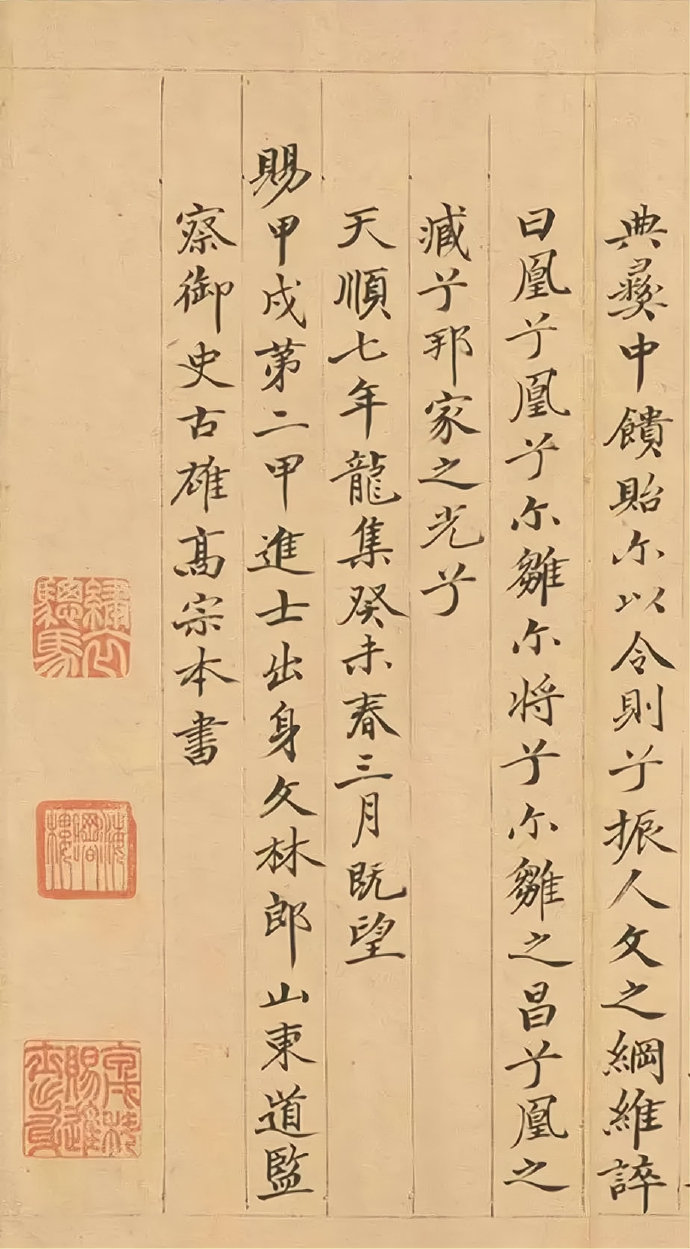 典彝中饋貽尒以令則兮振人文之綱維誶
曰凰兮凰兮尒雛尒将兮尒雛之昌兮凰之
臧兮邦家之光兮
天順七年龍集癸未春三月既望
賜甲戌第二甲進士出身文林郎山東道監
察御史古雄髙宗本書
繡衣驄馬